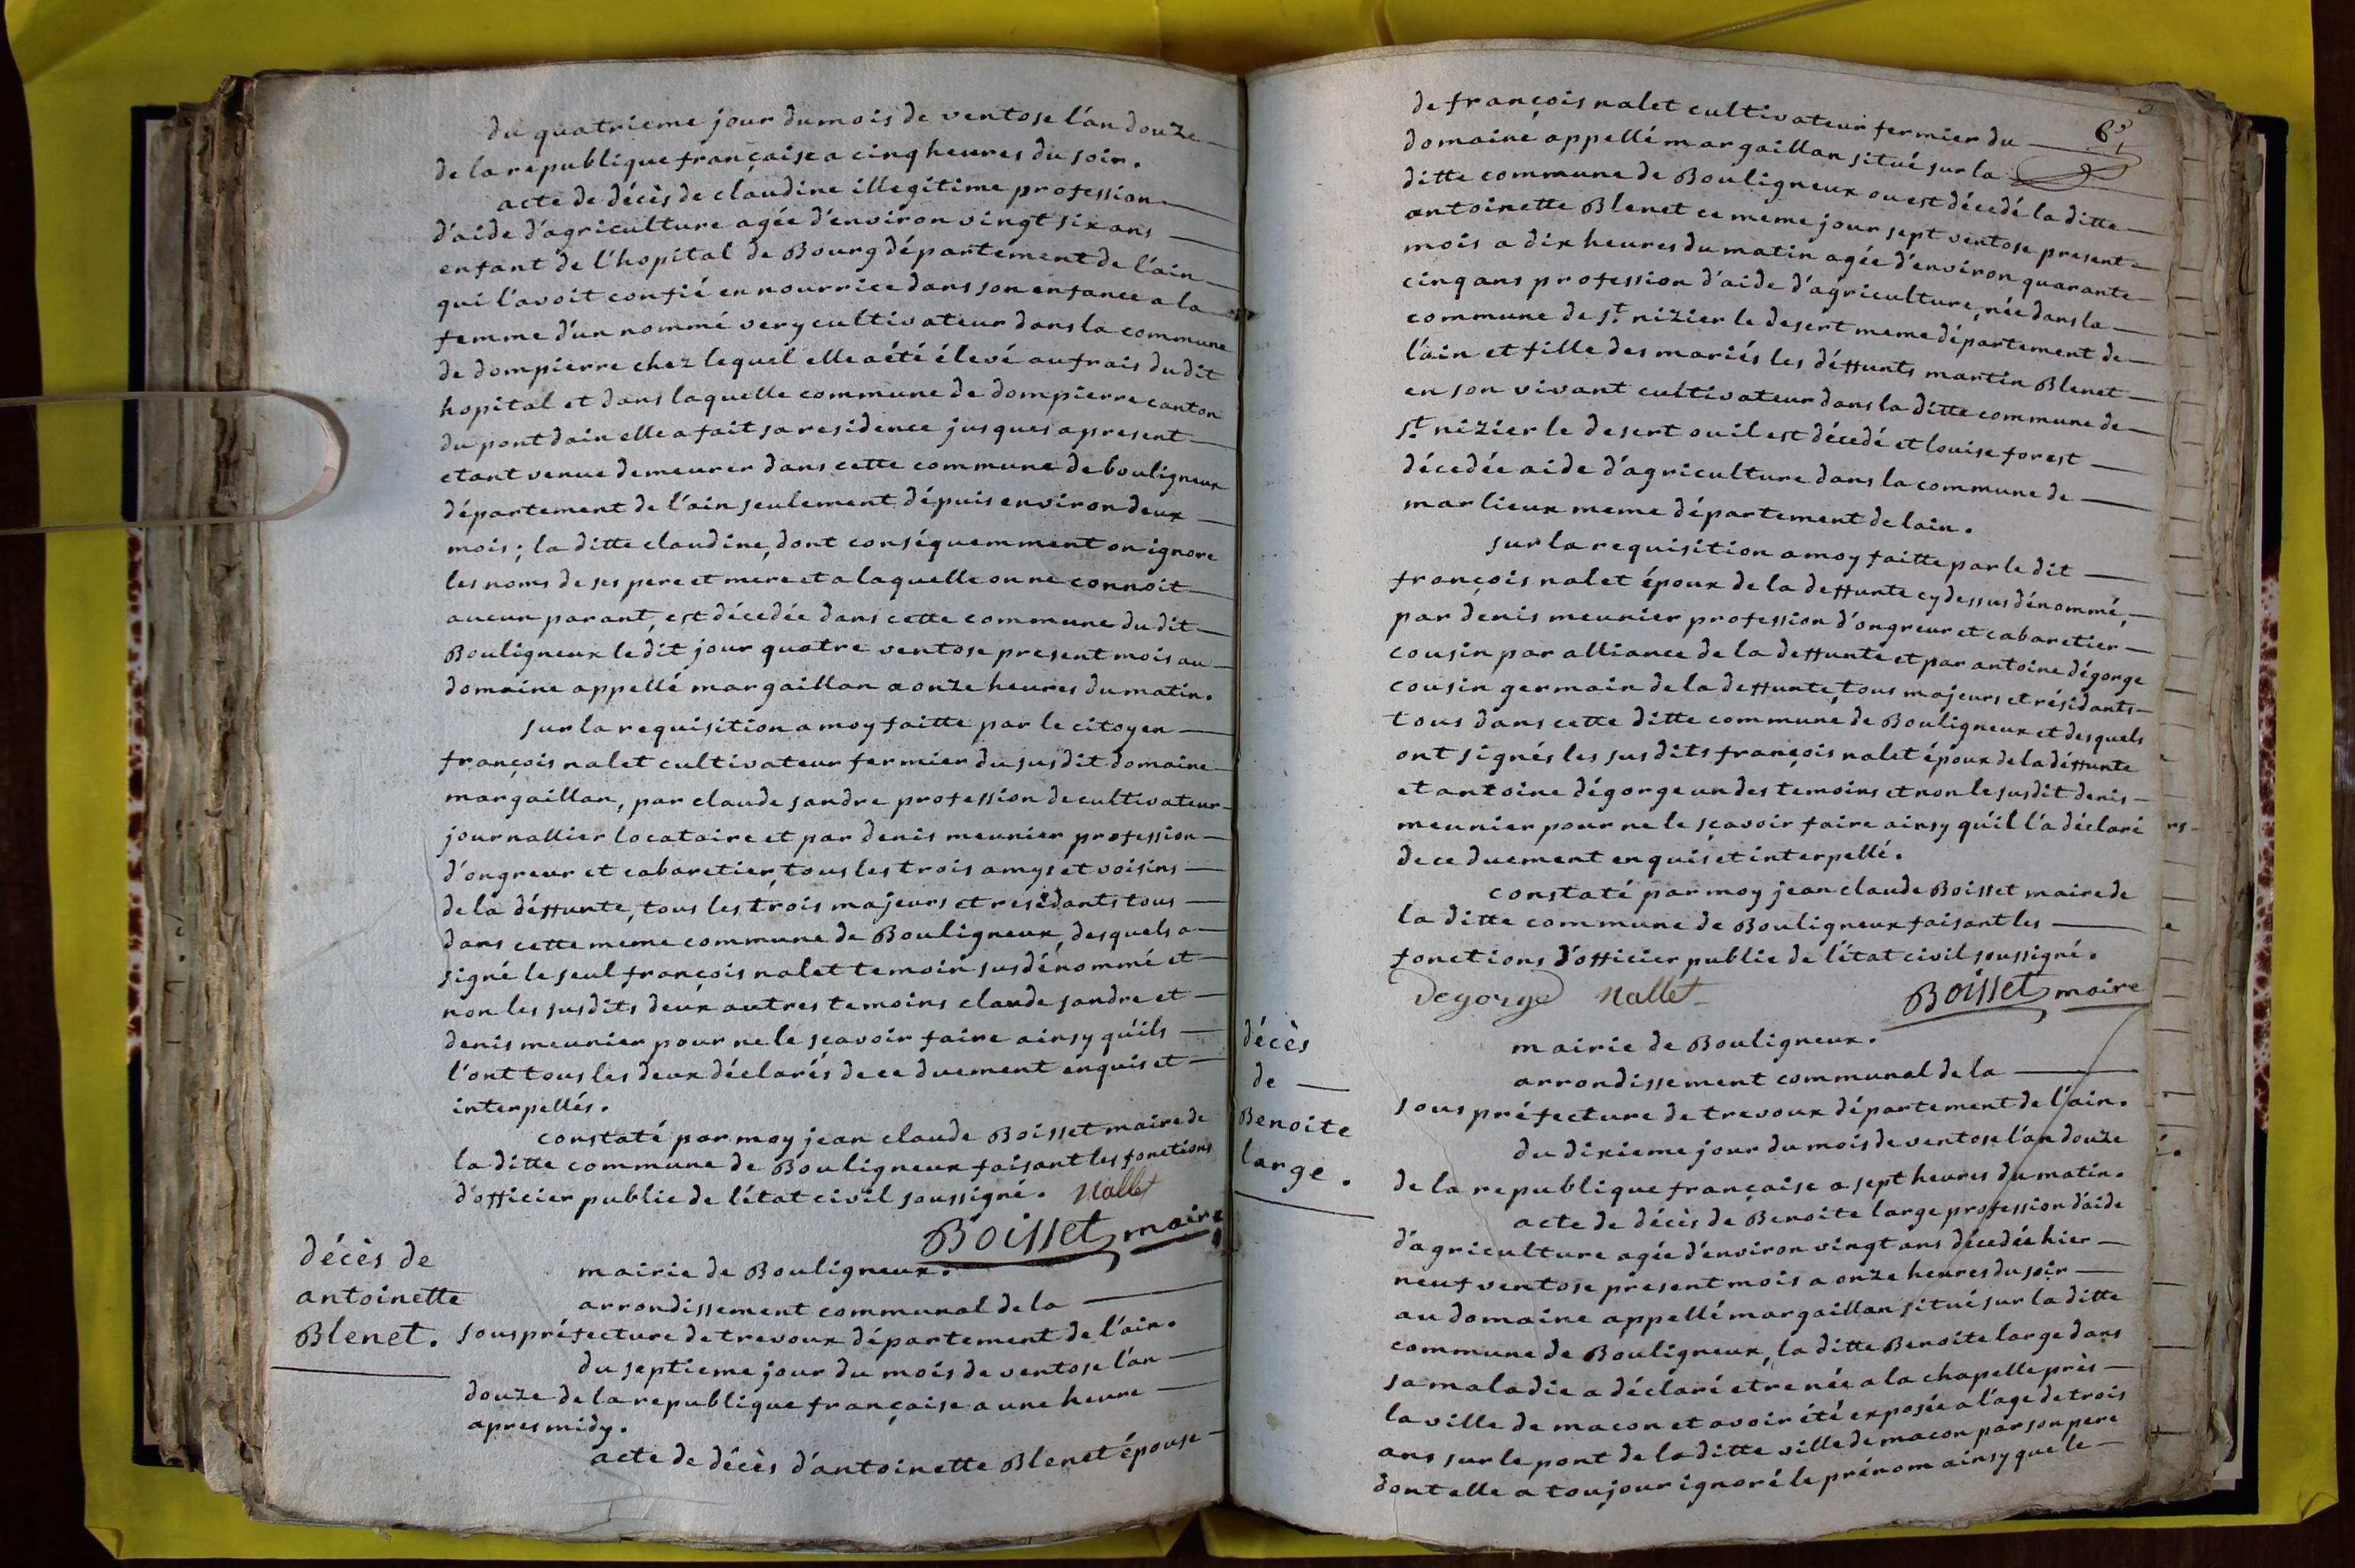 du quatrieme jour du mois de ventose l'an douze
de la republique française a cinq heures du soir.
acte de décès de claudine illegitime profession
d'aide d'agriculture agée d'environ vingt six ans
enfant de l'hopital de Bourg département de l'ain
qui l'avoit confié en nourrice dans son enfance a la
femme d'un nommé very cultivateur dans la commune
de dompierre chez lequel elle a été élevé au frais du dit
hopital et dans laquelle commune de dompierre canton
du pont dain elle a fait sa residence jusques a present
etant venue demeurer dans cette commune de bouligneux
département de l'ain seulement dépuis environ deux
mois; la ditte claudine, dont conséquemment on ignore
les noms de ses pere et mere et a laquelle on ne connoit
aucun parant, est décedée dans cette commune du dit
Bouligneux le dit jour quatre ventose present mois au
domaine appellé margaillan a onze heures du matin.
sur la requisition a moy faitte par le citoyen
françois nalet cultivateur fermier du susdit domaine
margaillan, par claude sandre profession de cultivateur
journallier locataire et par denis meunier profession
d'ongreur et cabaretier, tous les trois amys et voisins
de la déffunte, tous les trois majeurs et residants tous
dans cette meme commune de Bouligneux, desquels a
signé le seul françois nalet temoin susdénommé et
non les susdits deux autres temoins claude sandre et
denis meunier pour ne le sçavoir faire ainsy qu'ils
l'ont tous les deux déclarés de ce duement enquis et
interpellés.
constaté par moy jean claude Boisset maire de
la ditte commune de Bouligneux faisant les fonctions
d'officier public de l'état civil soussigné. Nallet
Boisset maire
décès de
antoinette
Blenet.
mairie de Bouligneux.
arrondissement communal de la
souspréfecture de trevoux département de l'ain.
du septieme jour du mois de ventose l'an
douze de la republique française a une heure
apres midy.
acte de décès d'antoinette Blenet épouse
de françois nalet cultivateur fermier du
domaine appellé margaillan situé sur la
ditte commune de Bouligneux ou est décedé la ditte
antoinette Blenet ce meme jour sept ventose present
mois a dix heures du matin agée d'environ quarante
cinq ans profession d'aide d'agriculture, née dans la
commune de st. nizier le desert meme département de
l'ain et fille des mariés les déffunts martin Blenet
en son vivant cultivateur dans la ditte commune de
st. nizier le desert ou il est décedé et louise forest
décedée aide d'agriculture dans la commune de
marlieux meme département de lain.
sur la requisition a moy faitte par le dit
françois nalet époux de la deffunte cy dessus dénommé,
par denis meunier profession d'ongreur et cabaretier
cousin par alliance de la deffunte et par antoine dégorge
cousin germain de la deffunte, tous majeurs et résidants
tous dans cette ditte commune de Bouligneux et desquels
ont signés les susdits françois nalet époux de la déffunte
et antoine dégorge un des temoins et non le susdit denis
meunier pour ne le sçavoir faire ainsy qu'il l'a déclaré
de ce duement enquis et interpellé.
constaté par moy jean claude Boisset maire de
la ditte commune de Bouligneux faisant les
fonctions d'officier public de l'état civil soussigné.
Degorge Nallet Boisset maire
décès
de
Benoite
large.
mairie de Bouligneux.
arrondissement communal de la
sous préfecture de trevoux département de l'ain.
du dixieme jour du mois de ventose l'an douze
de la republique française a sept heures du matin.
acte de décès de Benoite large profession d'aide
d'agriculture agée d'environ vingt ans décedée hier
neuf ventose present mois a onze heures du soir
au domaine appellé margaillan situé sur la ditte
commune de Bouligneux, la ditte Benoite large dans
sa maladie a déclaré etre née a la chapelle près
la ville de macon et avoir été exposée a l'age de trois
ans sur le pont de la ditte ville de macon par son pere
dont elle a toujour ignoré le prénom ainsy que le